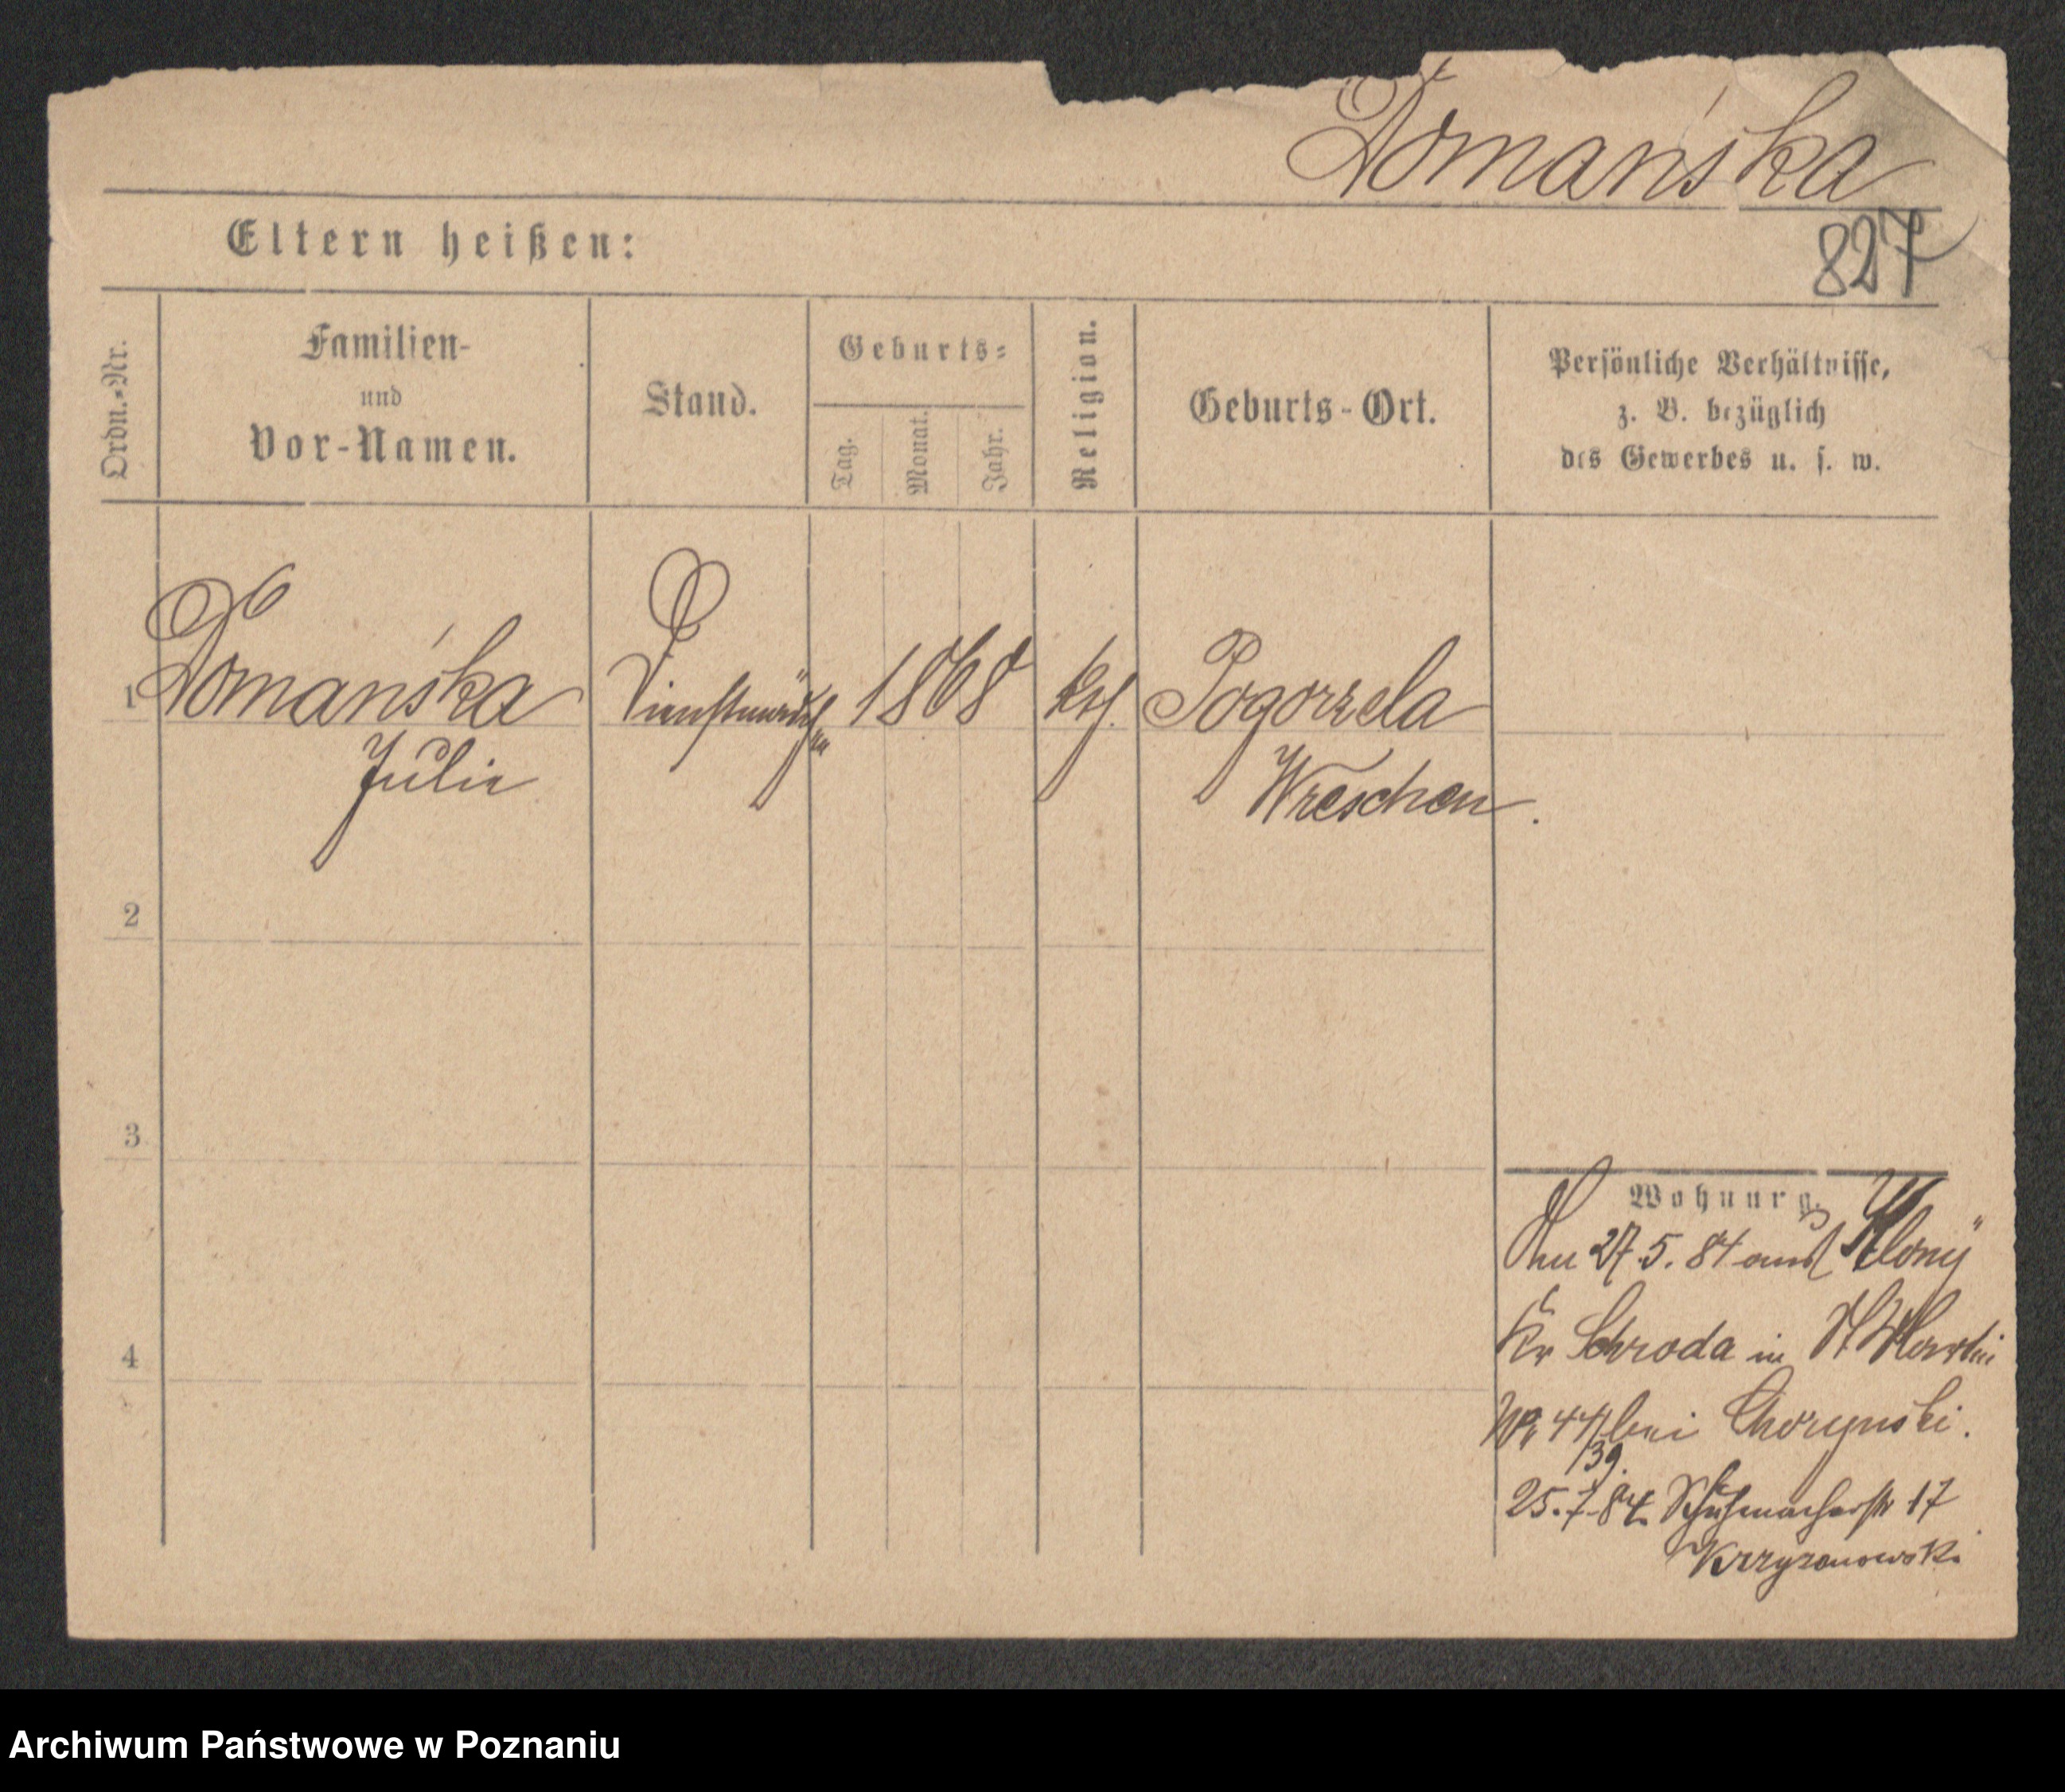 Domańska
827
Eltern heißen:
Ordn.-Nr.
Familien-
und
Vor-Namen.
Stand.
Geburts-
Tag.
Monat.
Jahr.
Religion.
Geburts-Ort.
Persönliche Verhältnisse,
z. B. bezüglich
des Gewerbes u. s. w.
1
Domańska
Julie
1868
kth.
Pogorzela
Wreschen.
2
3
4
Wohnung.
27.5.84 aus Klony
Kr Schroda in
bei Chorynski.
39.
25.7.84 Schuhmacherstr 17
Krzyzanowski
Archiwum Państwowe w Poznaniu